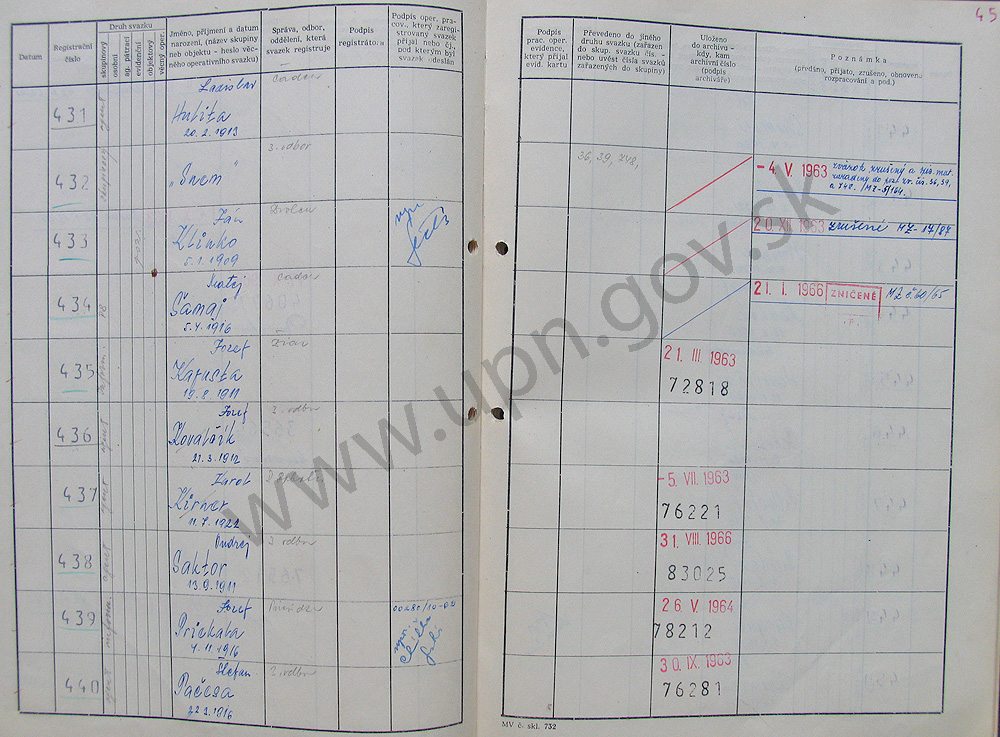 45
Datum
Registrační číslo
Druh svazku
skupinový
osobní
ag. pátrací
evidenční
objektový
věcný oper.
Jméno, příjmení a datum
narození, (název skupiny
neb objektu - heslo věc-
ného operativního svazku)
Správa, odbor,
oddělení, která
svazek registruje
Podpis
registrátora
Podpis oper. pra-
cov., který zaregi-
stroval svazek
přijal nebo čj.,
pod kterým byl
svazek odeslán
Podpis
prac. oper.
evidence,
který přijal
evid. kartu
Převedeno do jiného
druhu svazku (zařazen
do skup. svazku čis. -
nebo uvést čísla svazků
zařazených do skupiny)
Uloženo
do archivu -
kdy, kam
archivní číslo
(podpis
archiváře)
Poznámka
(předáno, přijato, zrušeno, obnoveno
rozpracování a pod.)
431 agent Ladislav Čadca
Hulita
20.2.1913
432 "Snem" 3. odbor 36, 39, 748, -4. V. 1963 zväzok zrušený a
433 Ján
Klinko
5.1.1909
20. XII. 1963 zrušené MZ-17/87
434 Matej Čadca
Šamaj
5.4.1916
21. I. 1966 ZNIČENÉ MZ č. 60/65
435 Jozef Žiar
Kapusta
19.8.1911
21. III. 1963
72818
436 agent Jozef 3. odbor
Kovalčík
21.3.1912
437 agent Karol
Kirner
11.7.1922
-5. VII. 1963
76221
438 agent Ondrej 3. odbor
Saktor
13.9.1911
31. VIII. 1966
83025
439 Jozef Prievidza
Priekala
4.11.1916
26. V. 1964
78212
440 agent Štefan 3. odbor
Pačesa
22.3.1916
30. IX. 1963
76281
MV č. skl. 732
www.upn.gov.sk